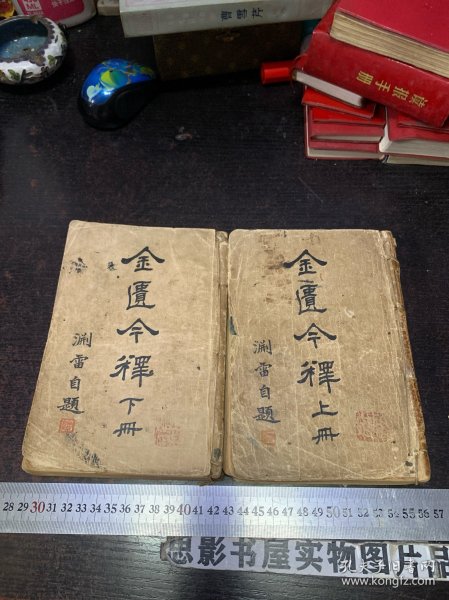 曹雪芹
谍报手册
金匱今釋下冊
淵雷自題
金匱今釋上冊
淵雷自題
28 29 30 31 32 33 34 35 36 37 38 39 40 41 42 43 44 45 46 47 48 49 50 51 52 53 54 55 56 57
思影书屋实物图片品
孔夫子旧书网
www.kongfz.com